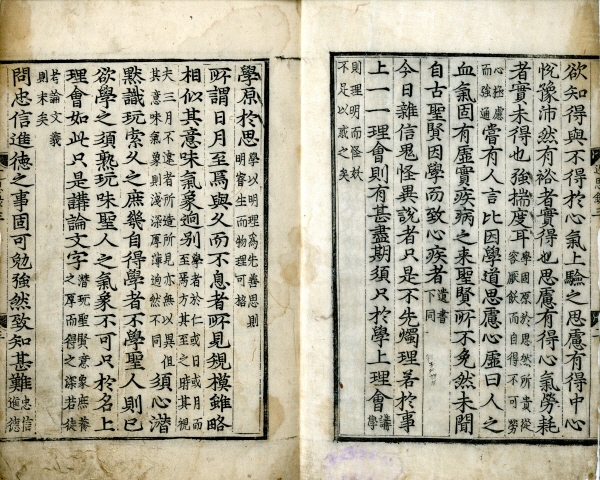 欲知得與不得於心氣上驗之思慮有得中心
悅豫沛然有裕者實得也思慮有得心氣勞耗
者實未得也強揣度耳學固原於思然所貴從容厭飫而自得不可勞
心極慮而強通嘗有人言比因學道思慮心虛曰人之
血氣固有虛實疾病之来聖賢所不免然未聞
自古聖賢因學而致心疾者遺書下同
今日雜信鬼怪異說者只是不先燭理若於事
上一一理會則有甚盡期須只於學上理會講學
則理明而怪妖不足以惑之矣
學原於思學以明理為先善思則明睿生而物理可格
所謂日月至焉與久而不息者所見規模雖略
相似其意味氣象迥別至焉方其至之時其視
夫三月不違者所造所見亦無以異但其意味氣象則淺深厚薄迥然不同須心潛
默識玩索久之庶幾自得學者不學聖人則已
欲學之須熟玩味聖人之氣象不可只於名上
理會如此只是講論文字潛玩聖賢意象庶養之厚而得之深若徒
考論文義則末矣
問忠信進德之事固可勉強然致知甚難忠信進德